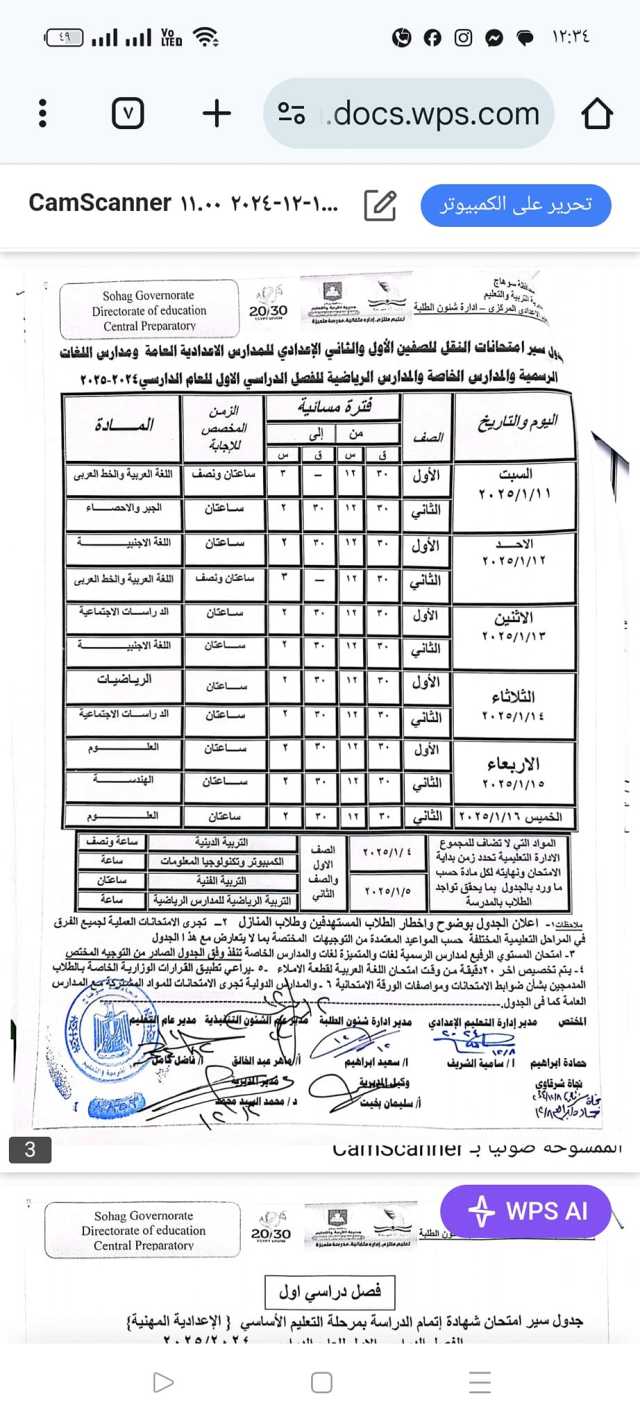 ٤٩
VoLTED
١٢:٣٤
٧
.docs.wps.com
CamScanner ١١.٠٠ ٢٠٢٤-١٢-١...
تحرير على الكمبيوتر
Sohag Governorate
Directorate of education
Central Preparatory
20/30
محافظة سوهاج
التربية والتعليم
الإعدادي المركزي – ادارة شئون الطلبة
جدول سير امتحانات النقل للصفين الأول والثاني الإعدادي للمدارس الاعدادية العامة ومدارس اللغات
الرسمية والمدارس الخاصة والمدارس الرياضية للفصل الدراسي الاول للعام الدارسي ٢٠٢٤-٢٠٢٥
اليوم والتاريخ الصف فترة مسائية الزمن المخصص للإجابة المـــادة
من إلى
ق س ق س
السبت ٢٠٢٥/١/١١ الأول ٣٠ ١٢ – ٣ ساعتان ونصف اللغة العربية والخط العربى
الثاني ٣٠ ١٢ ٣٠ ٢ ساعتان الجبر والاحصاء
الاحد ٢٠٢٥/١/١٢ الأول ٣٠ ١٢ ٣٠ ٢ ساعتان اللغة الاجنبية
الثاني ٣٠ ١٢ – ٣ ساعتان ونصف اللغة العربية والخط العربى
الاثنين ٢٠٢٥/١/١٣ الأول ٣٠ ١٢ ٣٠ ٢ ساعتان الدراسات الاجتماعية
الثاني ٣٠ ١٢ ٣٠ ٢ ساعتان اللغة الاجنبية
الثلاثاء ٢٠٢٥/١/١٤ الأول ٣٠ ١٢ ٣٠ ٢ ساعتان الرياضيات
الثاني ٣٠ ١٢ ٣٠ ٢ ساعتان الدراسات الاجتماعية
الاربعاء ٢٠٢٥/١/١٥ الأول ٣٠ ١٢ ٣٠ ٢ ساعتان العلوم
الثاني ٣٠ ١٢ ٣٠ ٢ ساعتان الهندسة
الخميس ٢٠٢٥/١/١٦ الثاني ٣٠ ١٢ ٣٠ ٢ ساعتان العلوم
المواد التي لا تضاف للمجموع
الادارة التعليمية تحدد زمن بداية
الامتحان ونهايته لكل مادة حسب
ما ورد بالجدول بما يحقق تواجد
الطلاب بالمدرسة
٢٠٢٥/١/٤ الصف الاول والصف الثاني التربية الدينية ساعة ونصف
الكمبيوتر وتكنولوجيا المعلومات ساعة
٢٠٢٥/١/٥ التربية الفنية ساعتان
التربية الرياضية للمدارس الرياضية ساعة
ملاحظات ١- اعلان الجدول بوضوح واخطار الطلاب المستهدفين وطلاب المنازل ٢- تجرى الامتحانات العملية لجميع الفرق
في المراحل التعليمية المختلفة حسب المواعيد المعتمدة من التوجيهات المختصة بما لا يتعارض مع هذا الجدول
٣- امتحان المستوي الرفيع لمدارس الرسمية لغات والمتميزة لغات والمدارس الخاصة تنفذ وفق الجدول الصادر من التوجيه المختص
٤- يتم تخصيص اخر ٢٠دقيقة من وقت امتحان اللغة العربية لقطعة الاملاء ٥- يراعي تطبيق القرارات الوزارية الخاصة بالطلاب
المدمجين بشأن ضوابط الامتحانات ومواصفات الورقة الامتحانية ٦- والمدارس الدولية تجرى الامتحانات للمواد المشتركة مع المدارس
العامة كما فى الجدول
المختص مدير إدارة التعليم الإعدادي مدير ادارة شئون الطلبة مدير عام الشئون التنفيذية مدير عام التعليم
حمادة ابراهيم أ/ سامية الشريف ا/ سعيد ابراهيم أ/ماهر عبد الخالق أ/ فاضل كامل
نجاة شرقاوي وكيل المديرية مدير المديرية
أ/ سليمان بخيت د / محمد السيد محمد
3
الممسوحة ضوئيا بـ CamScanner
Sohag Governorate
Directorate of education
Central Preparatory
20/30
WPS AI
فصل دراسي اول
جدول سير امتحان شهادة إتمام الدراسة بمرحلة التعليم الأساسي { الإعدادية المهنية}